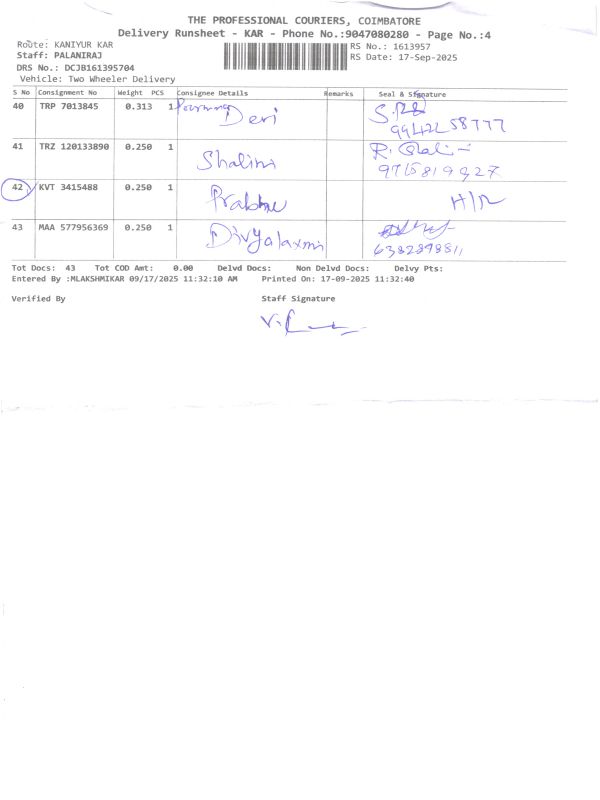 THE PROFESSIONAL COURIERS, COIMBATORE
Delivery Runsheet - KAR - Phone No.:9047080280 - Page No.:4
Route: KANIYUR KAR
RS No.: 1613957
Staff: PALANIRAJ
RS Date: 17-Sep-2025
DRS No.: DCJB161395704
Vehicle: Two Wheeler Delivery
S No Consignment No Weight PCS Consignee Details Remarks Seal & Signature
40 TRP 7013845 0.313 1 Devi
41 TRZ 120133890 0.250 1 Shalini
42 KVT 3415488 0.250 1 Prabhu H/R
43 MAA 577956369 0.250 1 Divyalaxmi
Tot Docs: 43 Tot COD Amt: 0.00 Delvd Docs: Non Delvd Docs: Delvy Pts:
Entered By :MLAKSHMIKAR 09/17/2025 11:32:10 AM Printed On: 17-09-2025 11:32:40
Verified By Staff Signature